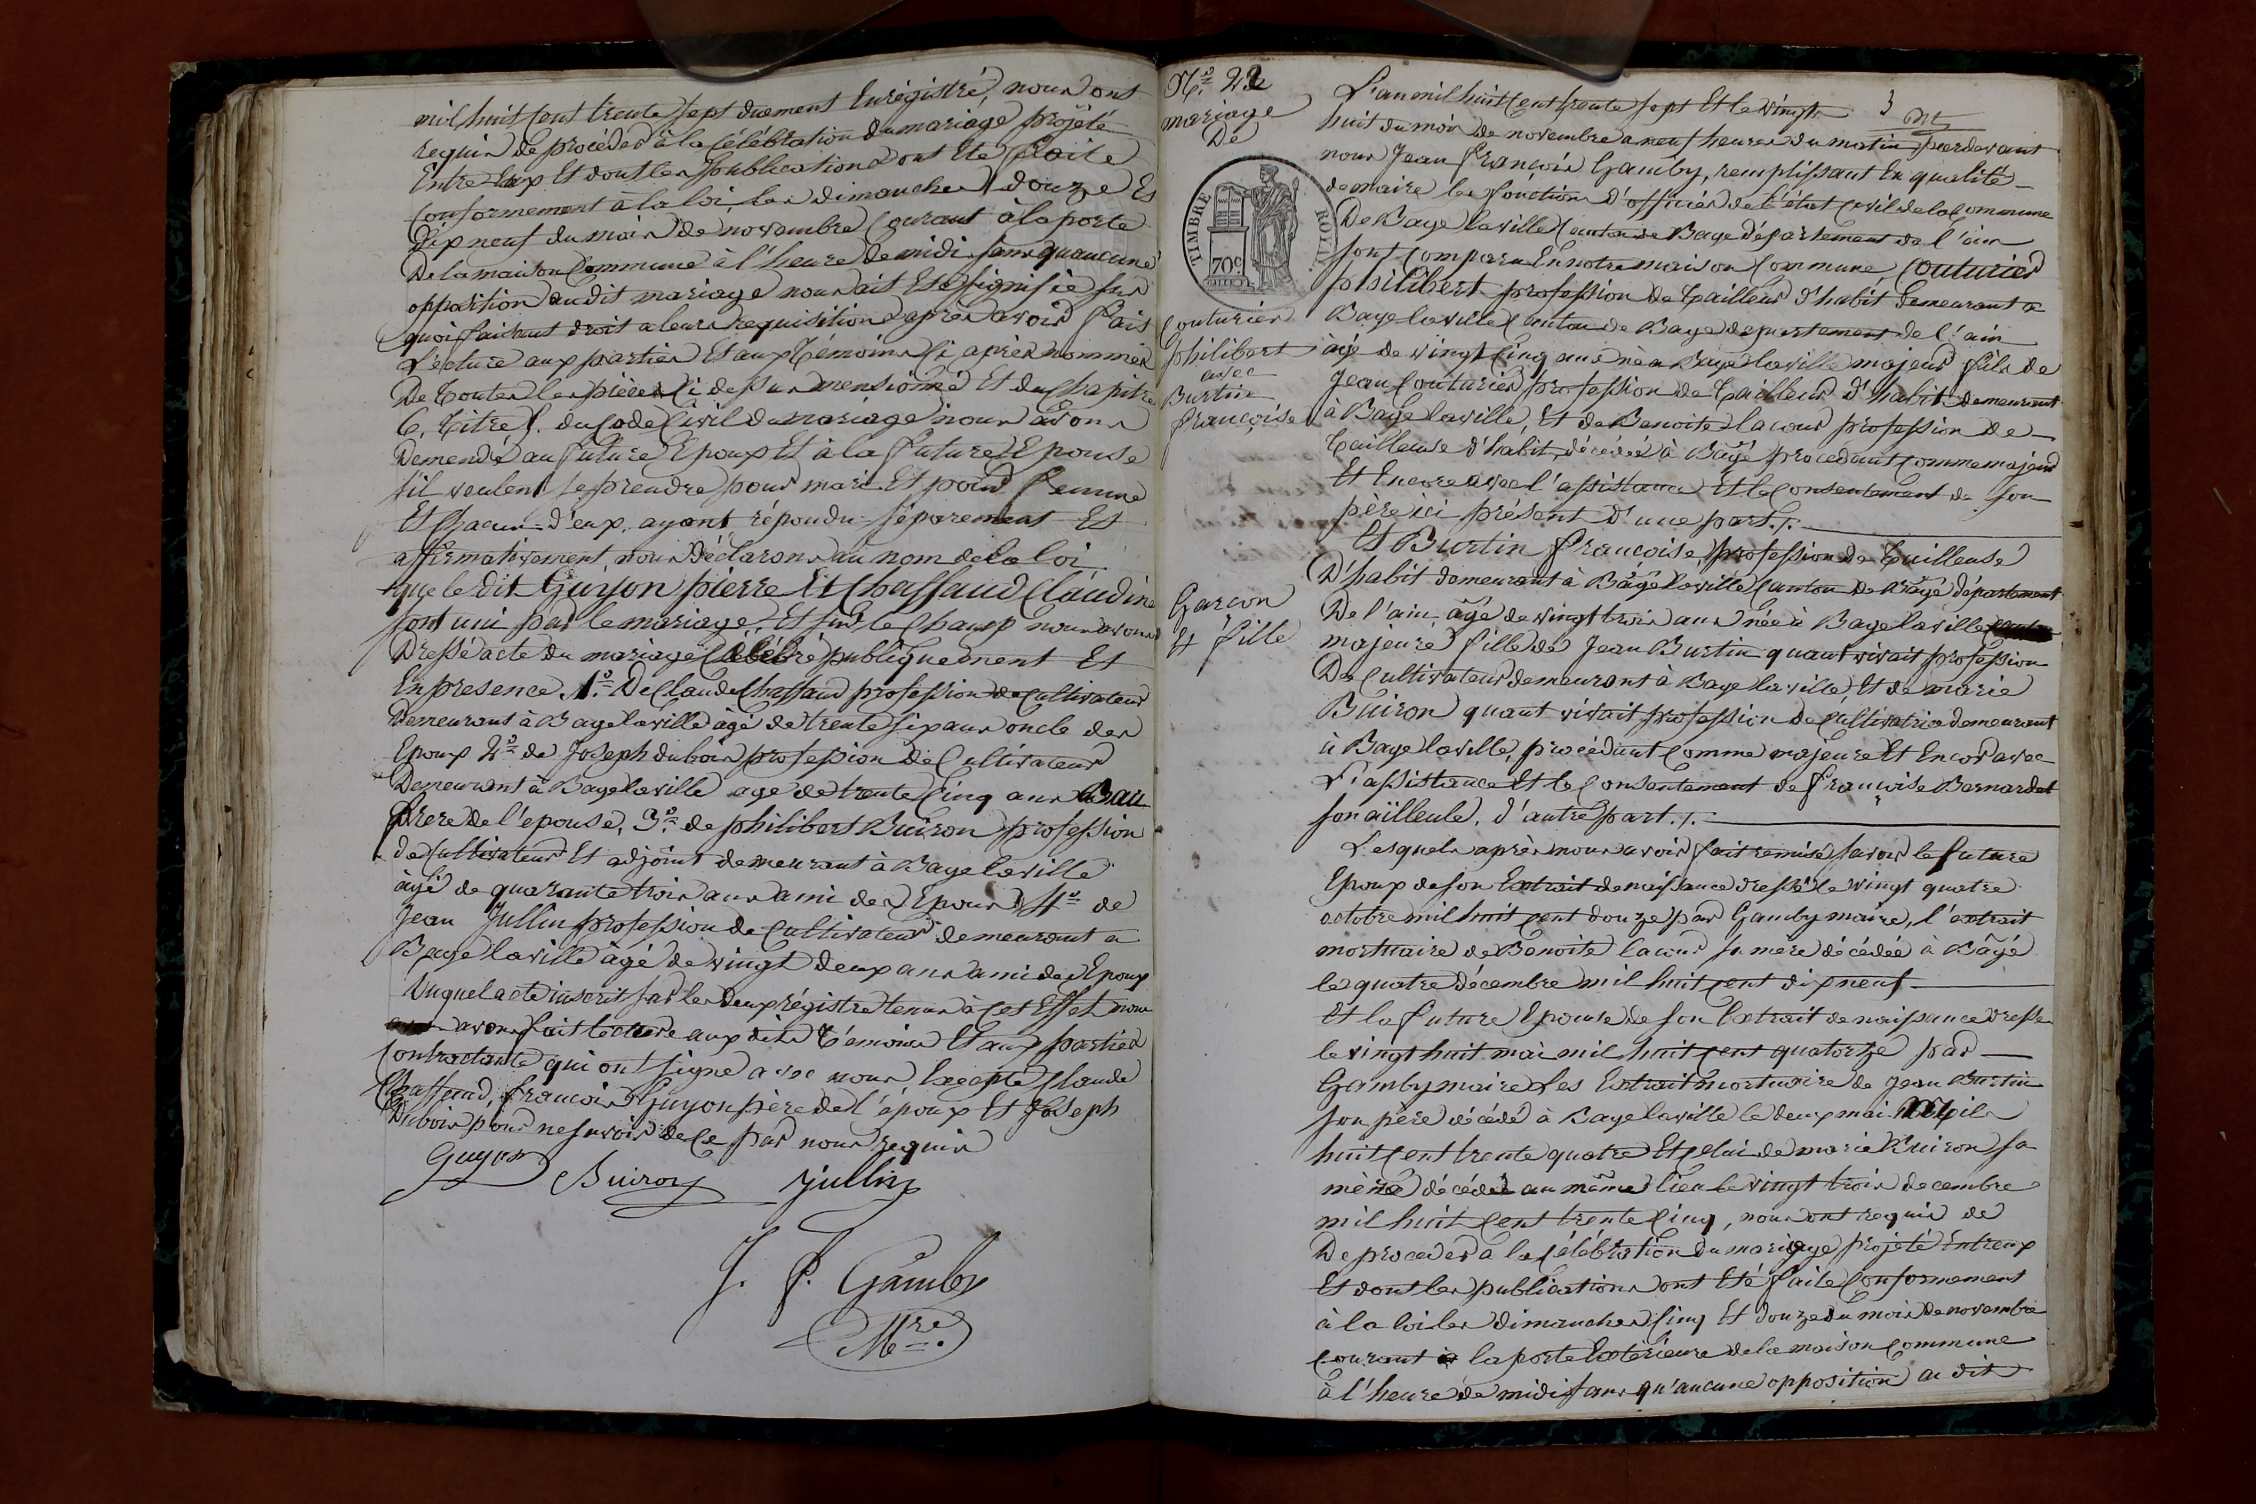 mil huit cent trente sept duement Enregistré, nous ont
requis de procéder à la célébration du mariage projété
Entre Eux Et dont les publications ont Eté faite
Conformement à la loi, les dimanches douze Et
Dix neuf du mois de novembre Courant à la porte
De la maison Commune à l'heure de midi sans quaucune
opposition audit mariage nous ait Eté signifié sur
quoi faisant droit a leurs requisitions après avoir fait
Lecture aux parties Et aux témoins Ci après nommés
De toutes les pièces Ci dessus mensionné Et du chapitre
6. titre 5. du Code Civil du mariage nous avons
Demendé au future Epoux Et à la future Epouse
sil veulent se prendre pour mari Et pour femme
Et Chacun d'eux ayant répondu séparement Et
affirmativement, nous Déclarons au nom de la loi
que le dit Guyon pierre Et Chaffaud Claudine
sont uni par le mariage, Et sur le Champ nous avons
Dressé acte du mariage Célébré publiquement Et
En presence 1o. De Claude Chaffaud profession de cultivateur
Demeurant à Bagé la ville âgé de trente six ans oncle des
Epoux 2o. de Joseph dubois profession de Cultivateur
Demeurant à Bagé la ville age de trente Cinq ans Beau
frere de l'epouse, 3o. de philibert Buiron profession
de Cultivateur Et adjoint demeurant à Bage la ville
âgé de quarante trois ans ami des Epoux 4o. de
Jean Jullin profession de Cultivateur demeurant a
Bage la ville âgé de vingt deux ans ami des Epoux
Duquel acte inscrit sur les deux régistre tenus à Cet Effet nous
avons fait lecture aux dits témoins Et aux parties
Contractante qui ont signe avec nous, Excepté Claude
Chaffaud, francois Guyon père de l'époux Et Joseph
Dubois pour ne savoir de Ce par nous requis
Guyon Buiron Jullin
J. f. Gamby
Mre.
No. 22
mariage
De
TIMBRE ROYAL
70c
Couturier
philibert
avec
Burtin
françoise
Garcon
Et fille
L'an mil huit Cent trente sept Et le vingt
huit du mois de novembre a neuf heures du matin pardevant
nous Jean François Gamby, remplissant En qualité
de maire les fonction d'officier de l'état civil de la Commune
De Bage la ville Canton de Bage département de l'ain
sont Comparu En notre maison Commune, Couturier
philibert profession de tailleur d'habit demeurant a
Bage la ville Canton de Bage departement de l'ain
âgé de vingt Cinq ans né a Bagé la ville majeur fils de
Jean Couturier profession de tailleur d'habit demeurant
à Bagé la ville, Et de Benoite lacour profession de
tailleuse d'habit décédée à Bâgé procédant Comme majeur
Et Encore avec l'assistance Et le Consentement de son
père ici présent d'une part./.
Et Burtin françoise, profession de tailleuse
D'habit demeurant à Bâgé la ville Canton De Bâgé département
De l'ain, âgé de vingt trois ans née à Bage la ville
majeure fille de Jean Burtin quant vivait profession
De Cultivateur demeurant à Bage la ville Et de marie
Buiron quant vivait profession de Cultivatrice demeurant
à Bage la ville, procédant Comme majeure Et Encor avec
L'assistance Et le Consentement de françoise Bernardet
son aïlleule, d'autre part./.
Lesquels après nous avoir fait remise savoir le future
Epoux de son Extrait de naissance dressé le vingt quatre
octobre mil huit cent douze par Gamby maire, l'extrait
mortuaire de Benoite lacour sa mère décédée à Bâgé
le quatre décembre mil huit cent dix neuf
Et la future Epouse de son Extrait de naissance dresse
le vingt huit mai mil huit cent quatorze par
Gamby maire Les Extrait mortuaire de Jean Burtin
son père décédé à Bage la ville le deux mai mil
huit cent trente quatre Et Celui de marie Buiron sa
mère décédée au même lieu le vingt trois decembre
mil huit cent trente Cinq, nous ont requis de
De proceder à la Célébration du mariage projeté Entreux
Et dont les publications ont Eté faite Conformement
à la loi les dimanches Cinq Et douze du mois de novembre
courant à la porte Extérieure de la maison commune
à l'heure de midi sans qu'aucune opposition au dit